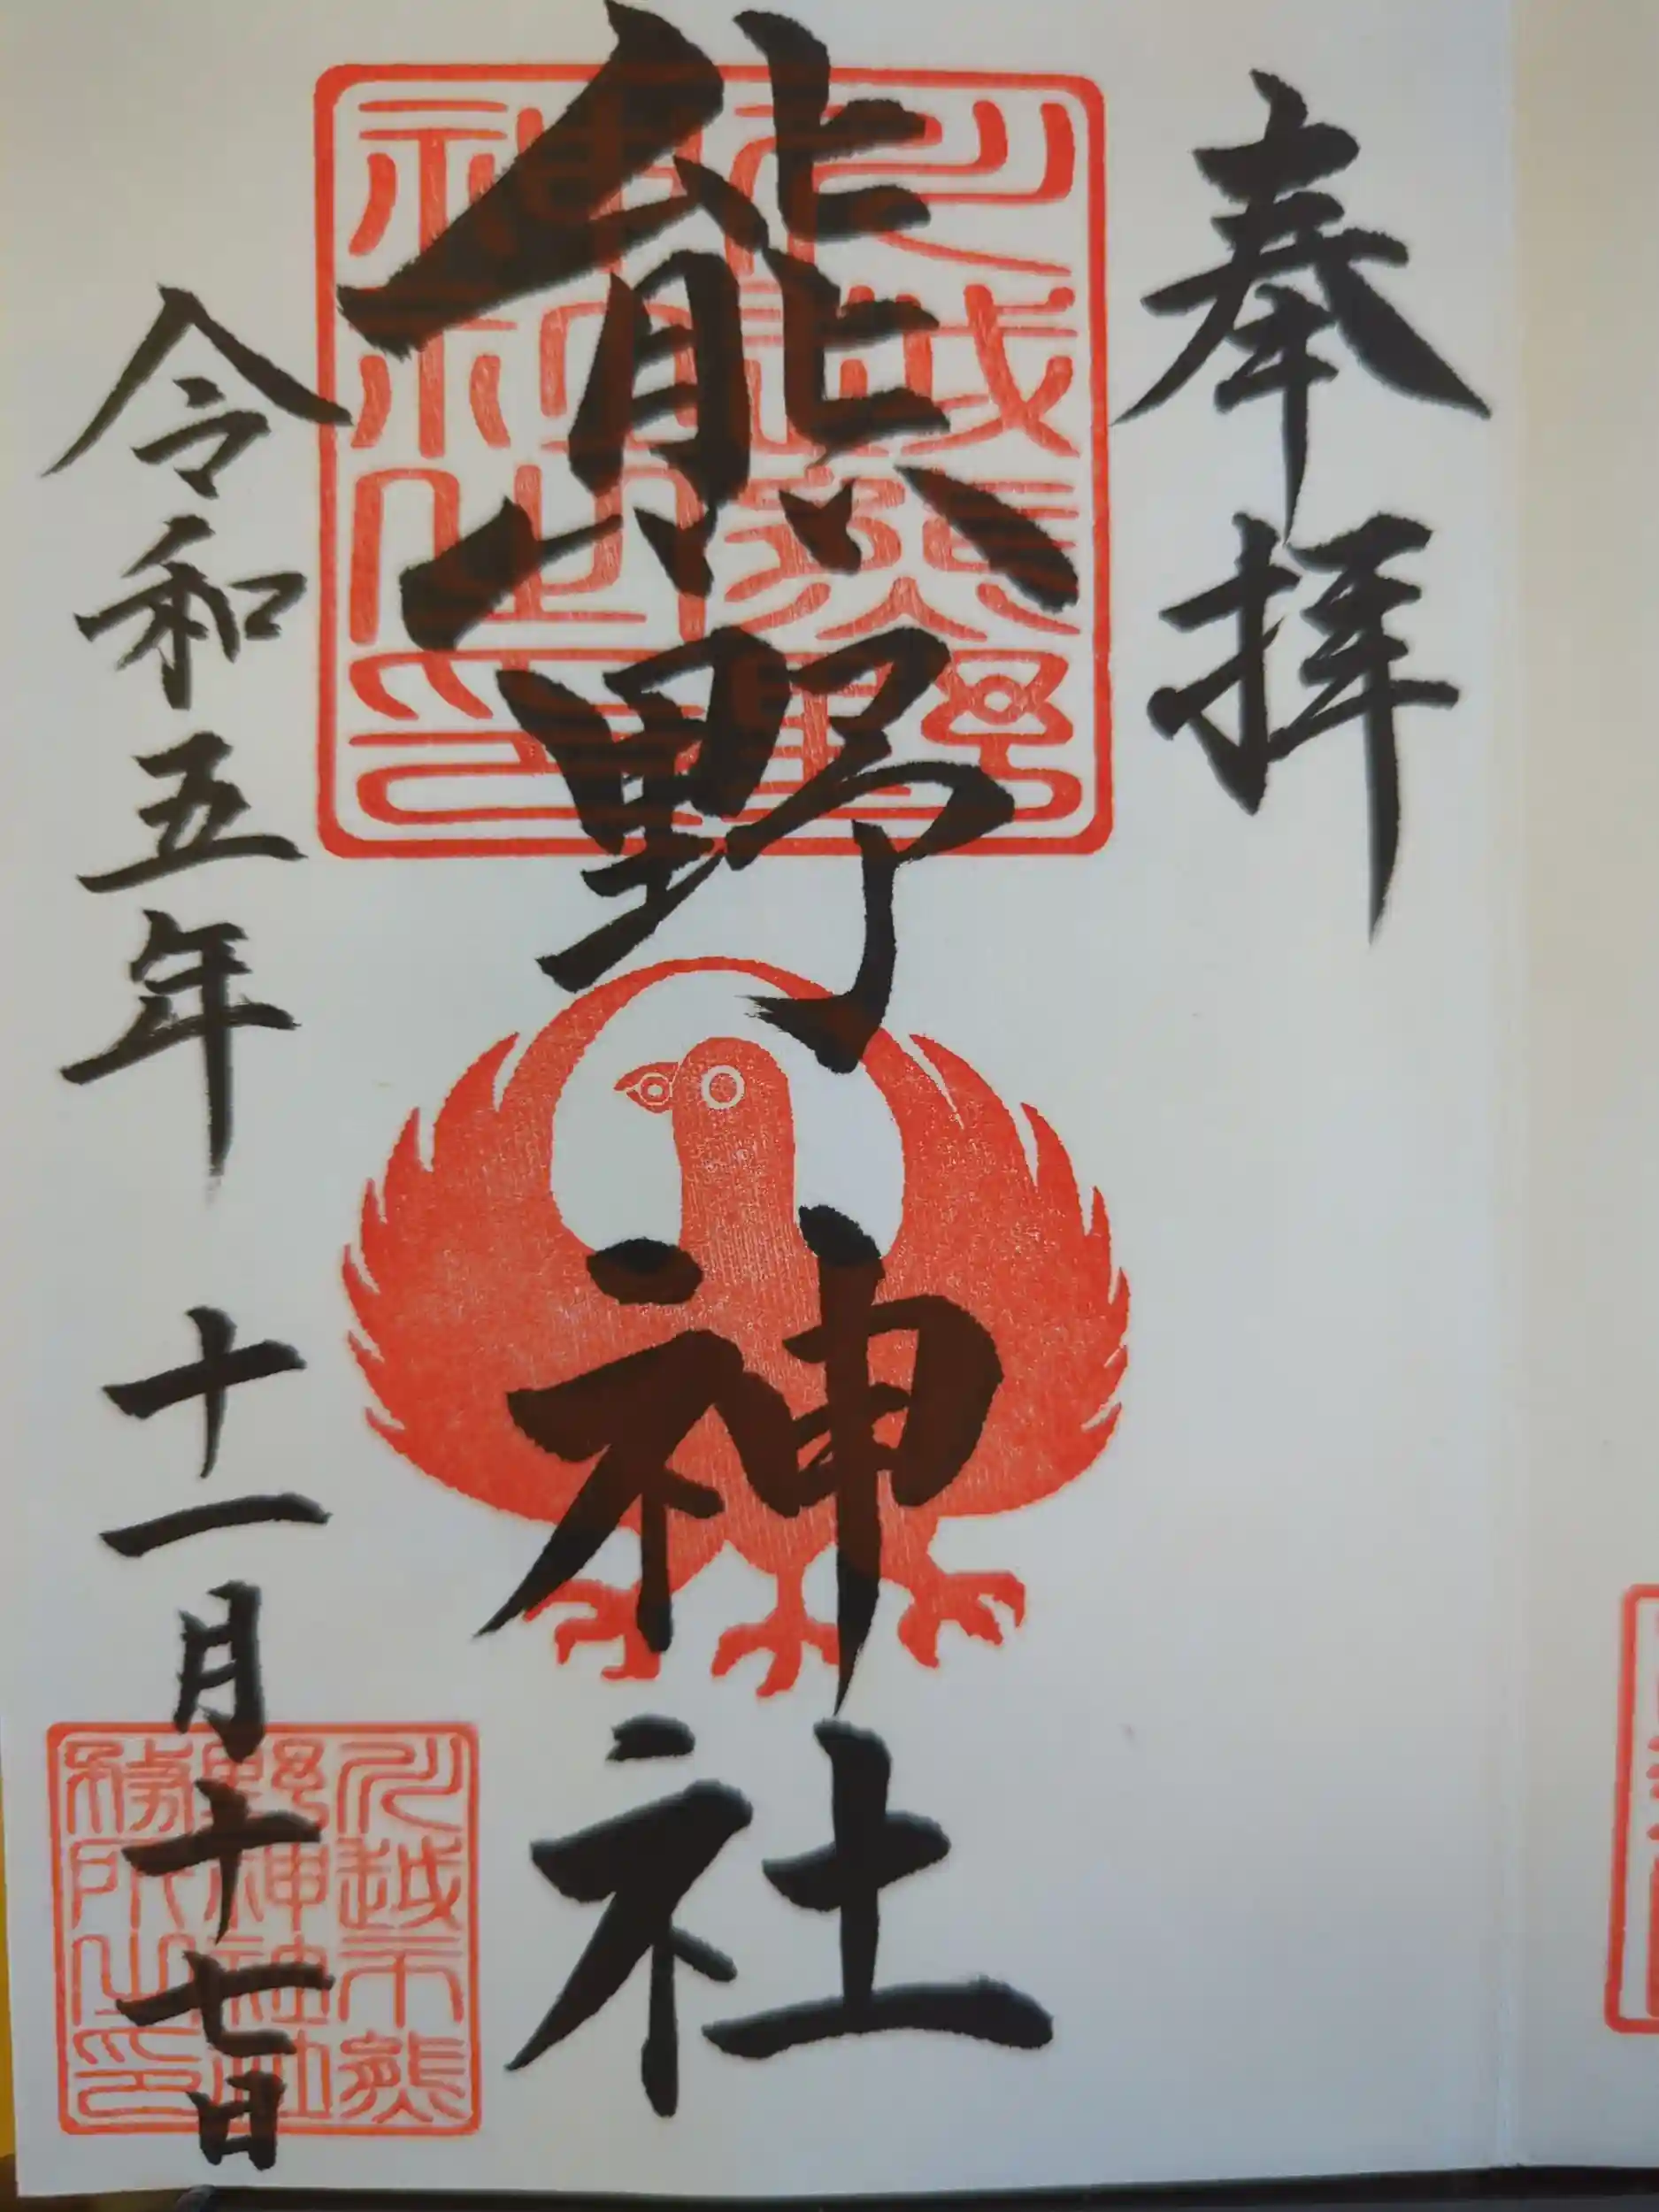 奉拝
熊野神社
令和五年 十一月十七日
川越熊野
神社之印
川越市熊
野神社社
務所之印